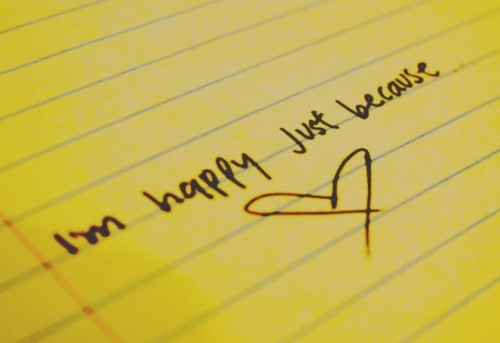 I'm happy just because...